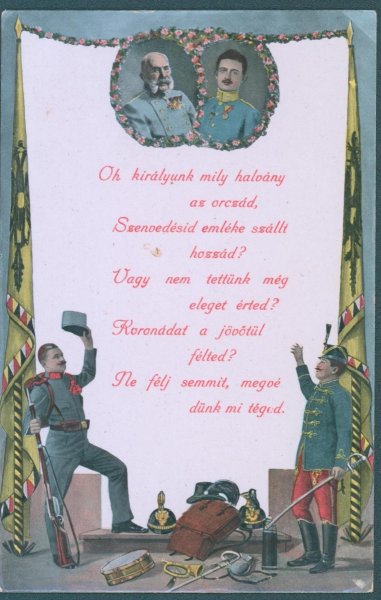 Oh királyunk mily halvány
az orczád,
Szenvedésid emléke szállt
hozzád?
Vagy nem tettünk még
eleget érted?
Koronádat a jövőtül
félted?
Ne félj semmit, megvé
dünk mi téged.